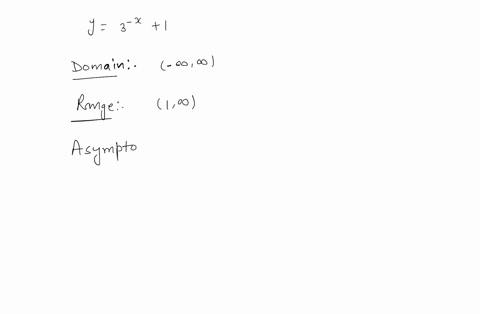 y = 3^{-x} + 1
Domain:. (-∞,∞)
Range:. (1,∞)
Asympto